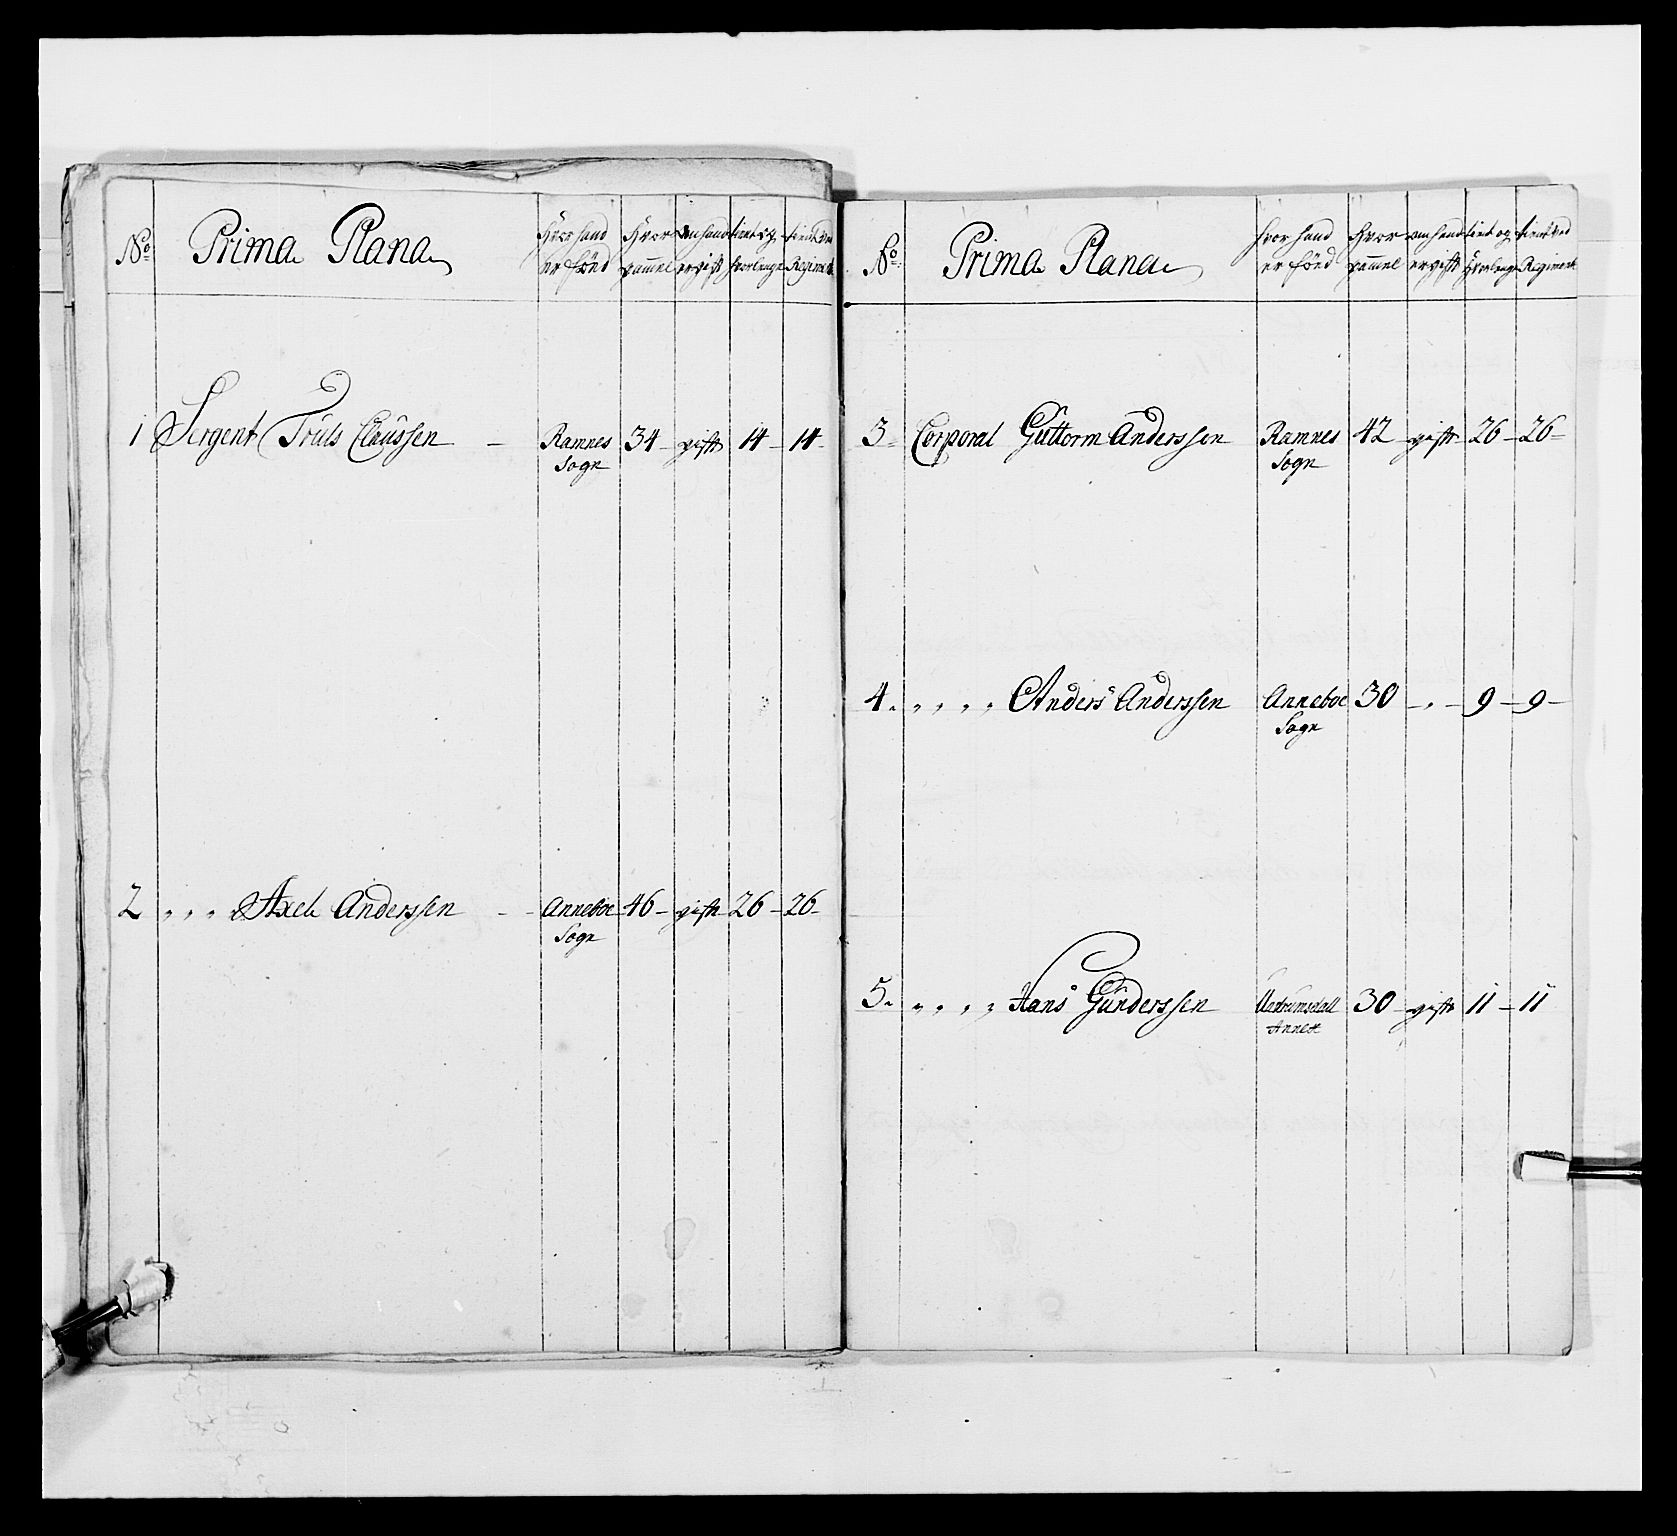 No Prima Plana hvor hand er född Hvor gammel om hand er gift tient og hvorlenge tient ved Regiment
1 Sergent Truls Claussen – Ramnes Sogn 34 – gift 14 – 14 –
2 „ „ „ Axel Anderssen – Anneboe Sogn 46 – gift 26 – 26 –
No Prima Plana hvor hand er född Hvor gammel om hand er gift tient og hvorlenge tient ved Regiment
3 Corporal Guttorm Anderssen Ramnes Sogn 42 gift 26 – 26 –
4. „ „ „ „ Anders Anderssen Anneboe Sogn 30 – „ – 9 – 9 –
5. „ „ „ „ Hans Gunderssen Annex 30 – gift 11 – 11